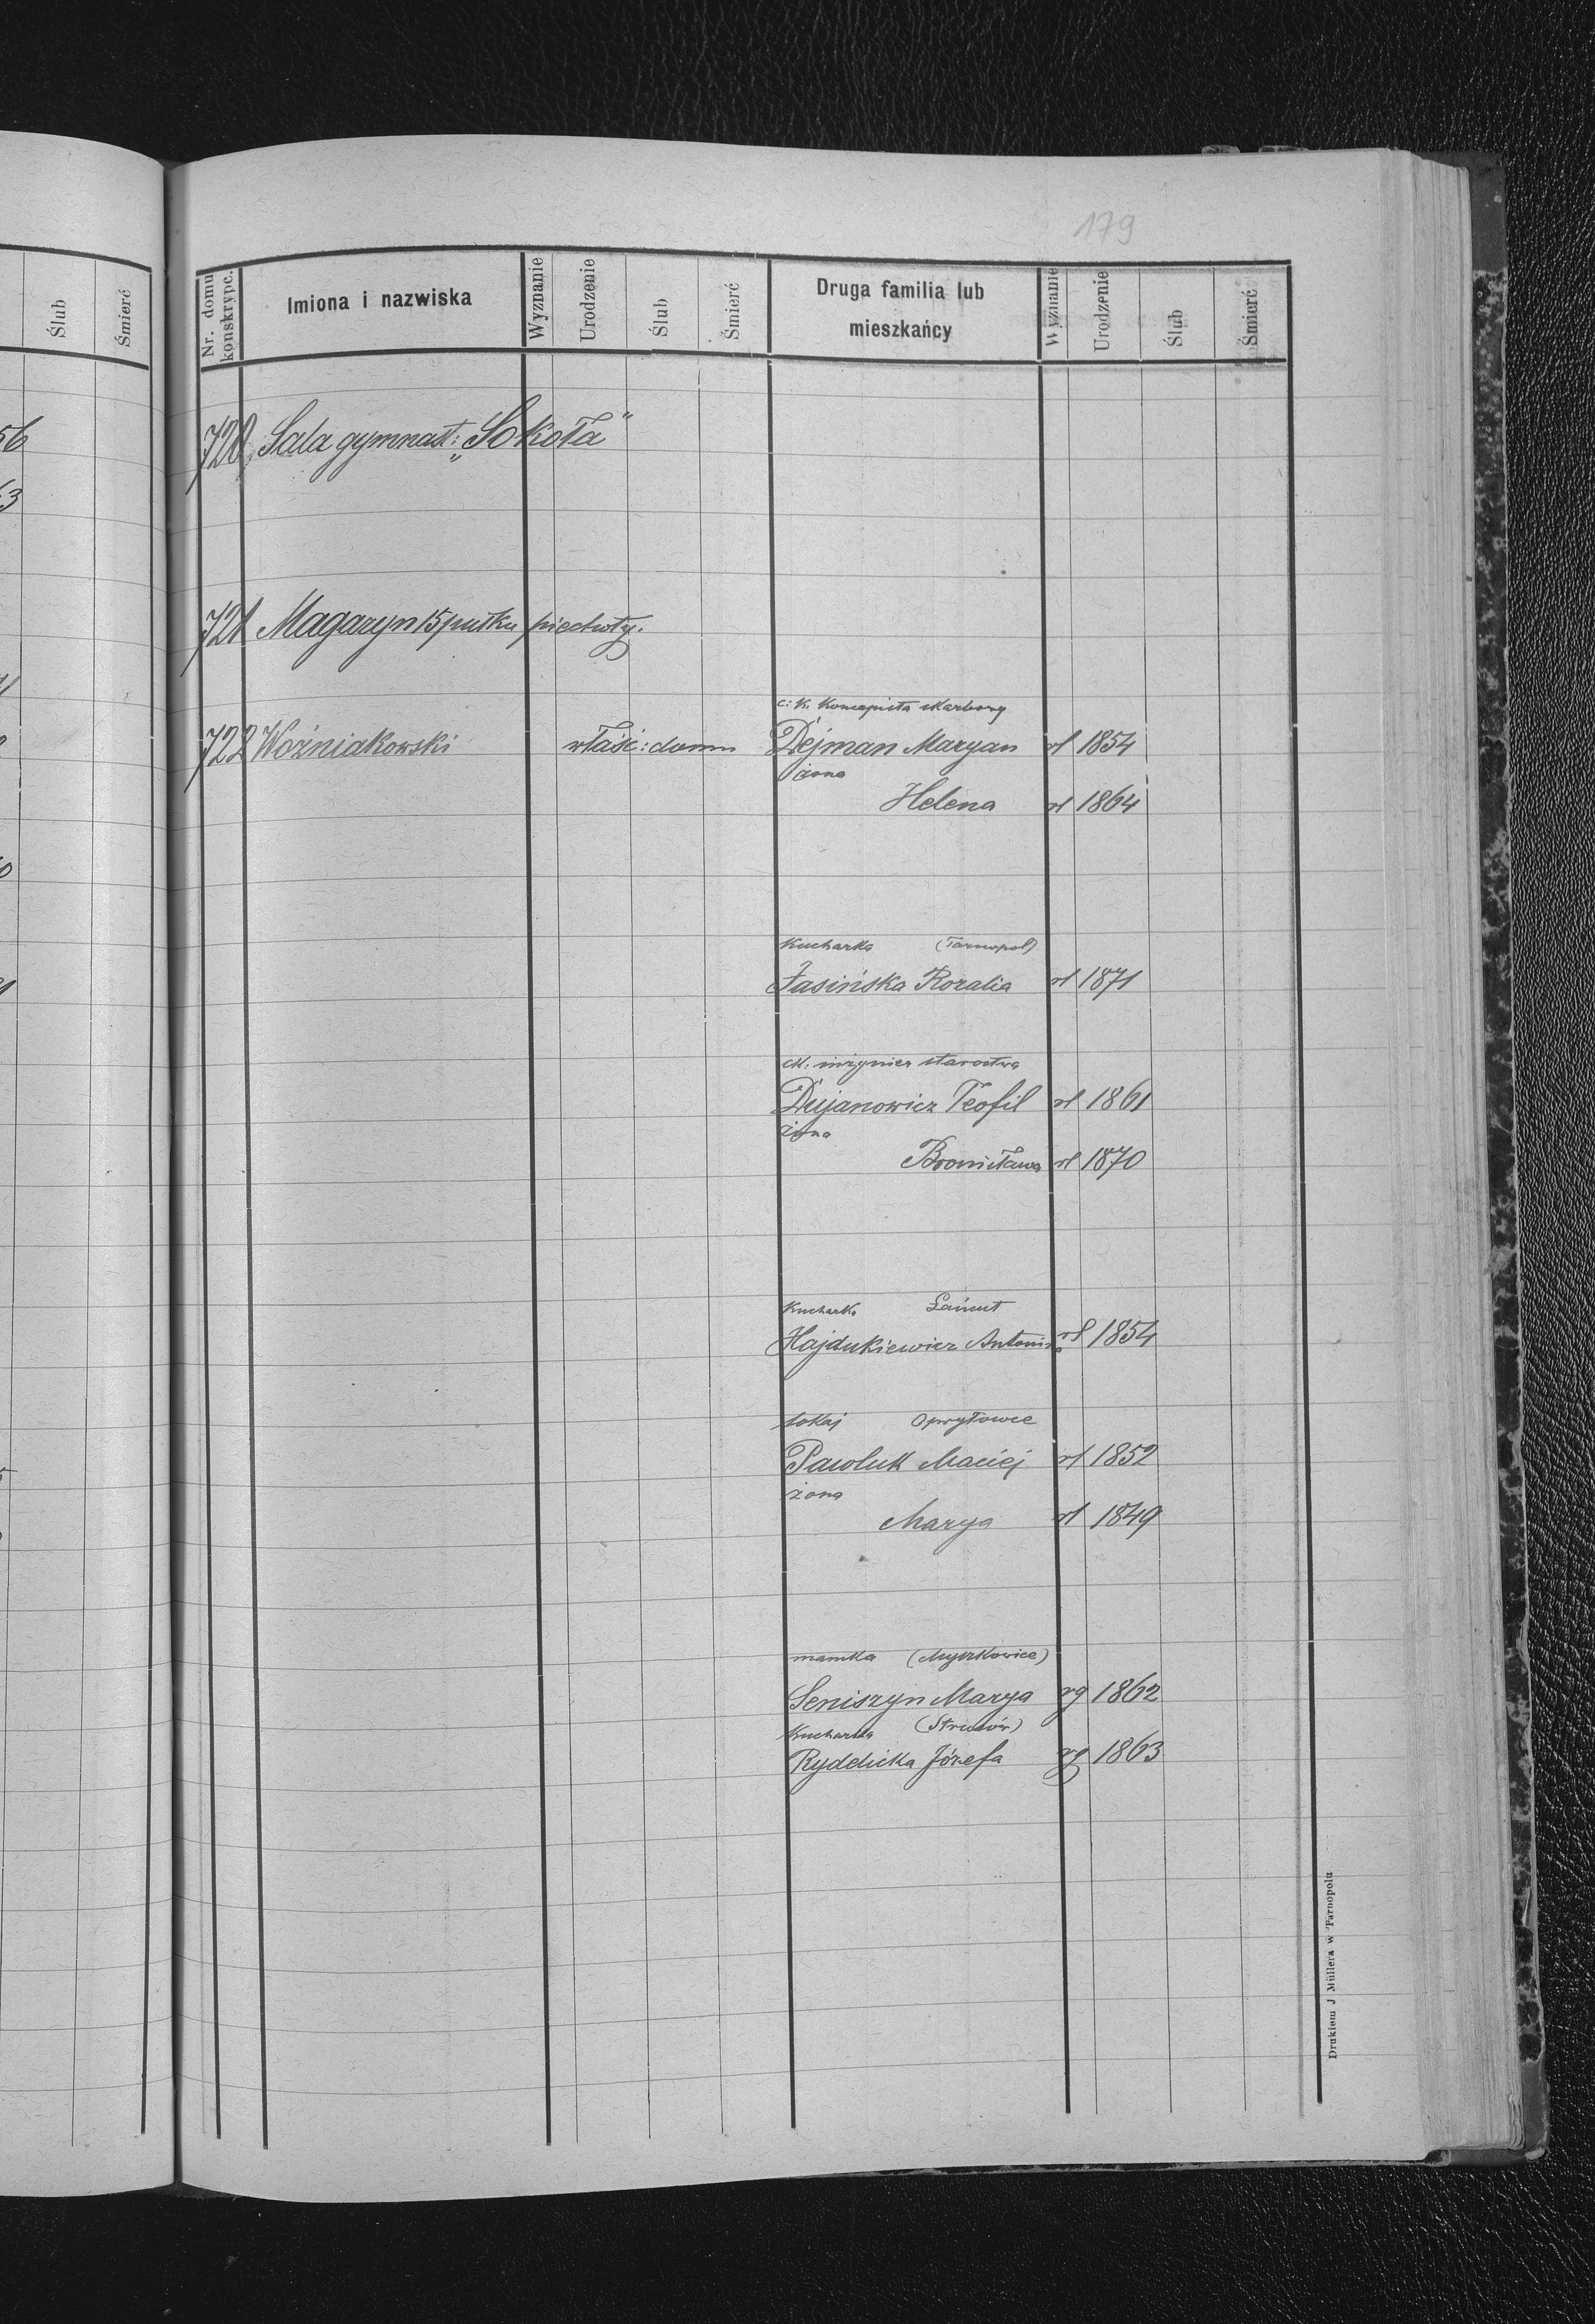 179
Ślub Śmierć
Nr. domu konskrypc. Imiona i nazwiska Wyznanie Urodzenie Ślub Śmierć Druga familia lub mieszkańcy Wyznanie Urodzenie Ślub Śmierć
56
63
720 Sala gymnast: „Sokoła"
721 Magazyn 15 pułku piechoty.
c: k. koncepista skarbowy
722 Woźniakowski właść: domu Dejman Maryan rl 1854
żona
Helena rl 1864
Kucharka (Tarnopol)
Jasińska Rozalia rl 1871
ck: inżynier starostwa
Dujanowicz Teofil rl 1861
żona
Bronisława rl 1870
Kucharka Łańcut
Hajdukiewicz Antonina rl 1854
lokaj Opryłowce
Pawluk Maciej rl 1852
żona
Marya rl 1849
mamka (Myszkowice)
Seniszyn Marya rg 1862
Kucharka (Strusów)
Rydelicka Józefa rg 1863
Drukiem J Müllera w Tarnopolu